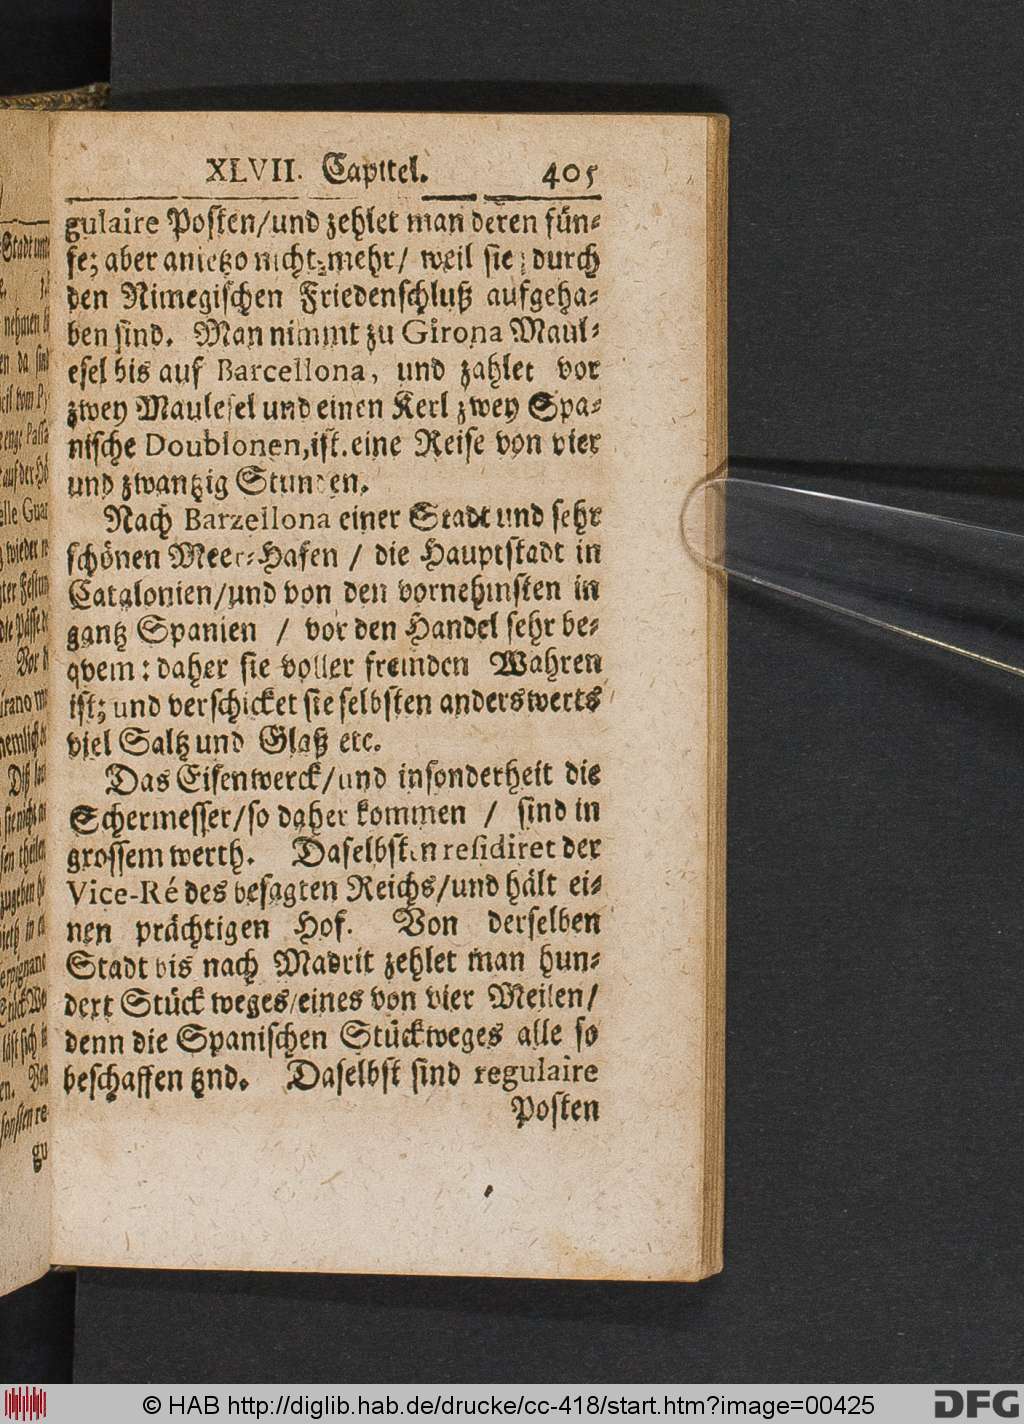 XLVII. Capitel. 405
gulaire Posten/und zehlet man deren fün-
fe; aber anietzo nicht mehr/ weil sie durch
den Nimegischen Friedenschluß aufgeha-
ben sind. Man nimmt zu Girona Maul-
esel bis auf Barcellona, und zahlet vor
zwey Maulesel und einen Kerl zwey Spa-
nische Doublonen, ist. eine Reise von vier
und zwantzig Stunden.
Nach Barzellona einer Stadt und sehr
schönen Meer-Hafen / die Hauptstadt in
Catalonien/und von den vornehmsten in
gantz Spanien / vor den Handel sehr be-
qvem: daher sie voller fremden Wahren
ist; und verschicket sie selbsten anderswerts
viel Saltz und Glaß etc.
Das Eisenwerck/und insonderheit die
Schermesser/so daher kommen / sind in
grossem werth. Daselbsten residiret der
Vice-Ré des besagten Reichs/und hält ei-
nen prächtigen Hof. Von derselben
Stadt bis nach Madrit zehlet man hun-
dert Stück weges/eines von vier Meilen/
denn die Spanischen Stückweges alle so
beschaffen sind. Daselbst sind regulaire
Posten
© HAB http://diglib.hab.de/drucke/cc-418/start.htm?image=00425
DFG